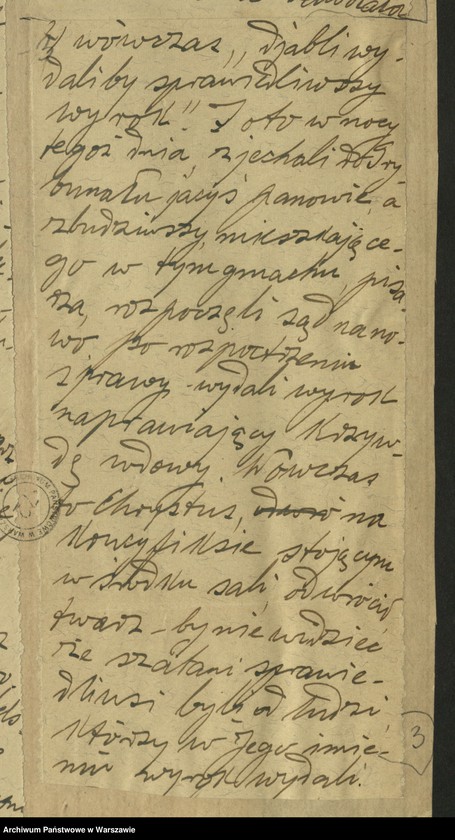 wówczas „djabli wy-
daliby sprawiedliwszy
wyrok". I oto w nocy
tegoż dnia zjechali do Try-
bunału jacyś panowie, a
zbudziwszy mieszkające-
go w tym gmachu pisa-
rza, rozpoczęli sąd na no-
wo po rozpatrzeniu
sprawy wydali wyrok
naprawiający krzyw-
dę wdowy. Wówczas
to Chrystus, na
Krucyfiksie stojącym
w środku sali, odwrócił
twarz – by nie widzieć
że szatani sprawie-
dliwsi byli od ludzi
którzy w Jego imie-
niu wyrok wydali.
3
Archiwum Państwowe w Warszawie